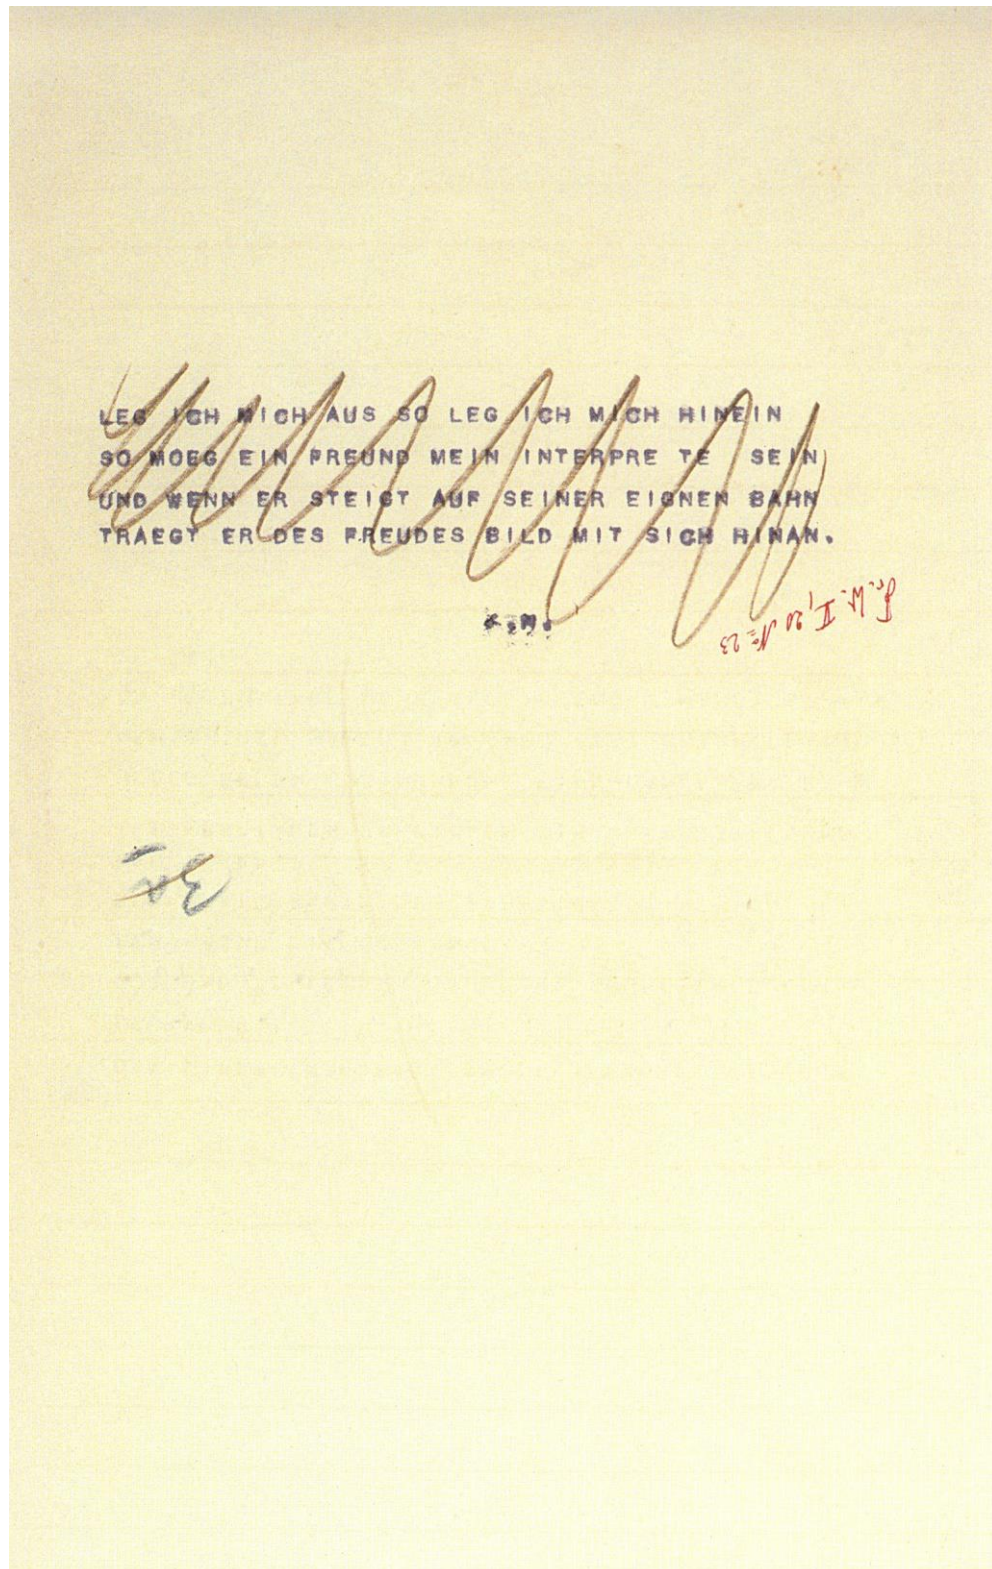 LEG ICH MICH AUS SO LEG ICH MICH HINEIN
SO MOEG EIN FREUND MEIN INTERPRE TE SEIN
UND WENN ER STEIGT AUF SEINER EIGNEN BAHN
TRAEGT ER DES FREUDES BILD MIT SICH HINAN.
Fr. W. V, 20 No 23